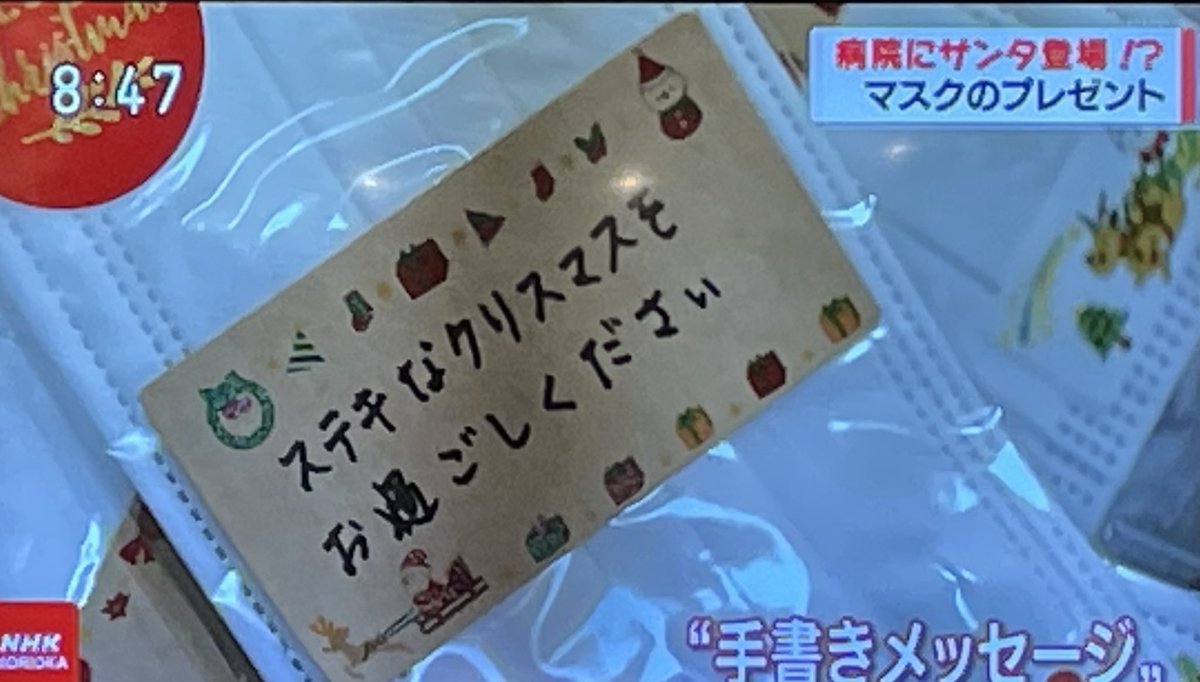 Christmas
8:47
病院にサンタ登場!?
マスクのプレゼント
ステキなクリスマスを
お過ごしください
NHK
MORIOKA
“手書きメッセージ”